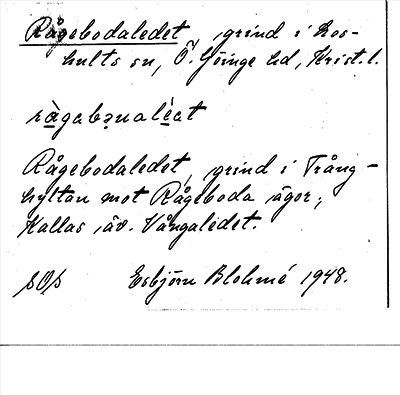 Rågebodaledet, grind i Hos-
hults sn, Ö. Göinge hd, Krist. l.
Rågebodaledet, grind i Trång-
hyltan mot Rågeboda ägor;
Kallas äv. Vångaledet.
Esbjörn Blohmé 1948.